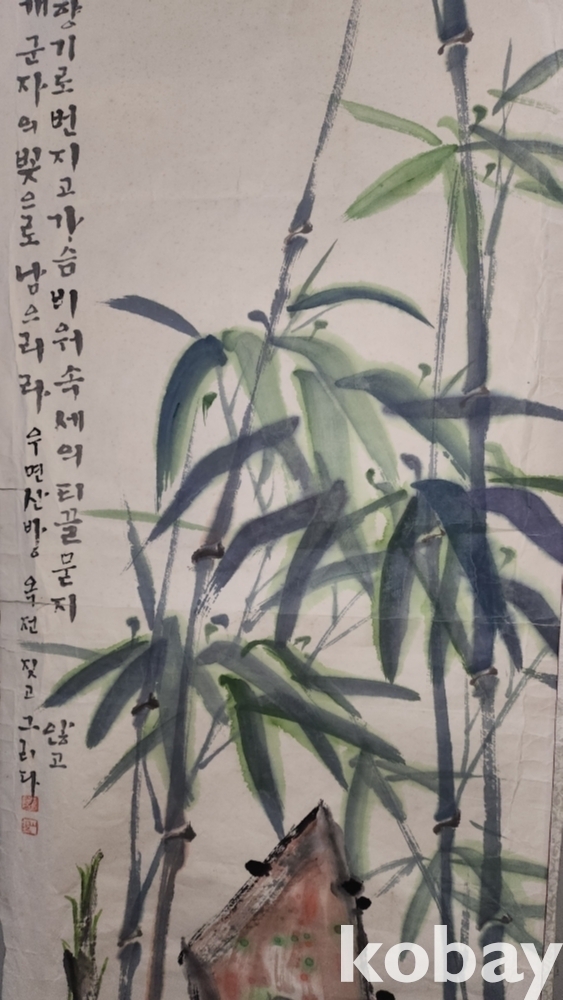 향기로 번지고 가슴 비워 속세의 티끌 묻지
않고
군자의 빛으로 남으리라 우면산방 옥전 짓고 그리다
kobay